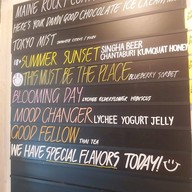 MAINE ROCKY
HERE'S YOUR DAMN GOOD CHOCOLATE ICE CREAM
TOKYO MIST
SUMMER SUNSET SINGHA BEER CHANTABURI KUMQUAT HONEY
THIS MUST BE THE PLACE BLUEBERRY SORBET
BLOOMING DAY LYCHEE ELDERFLOWER HIBISCUS
MOOD CHANGER LYCHEE YOGURT JELLY
GOOD FELLOW THAI TEA
WE HAVE SPECIAL FLAVORS TODAY!